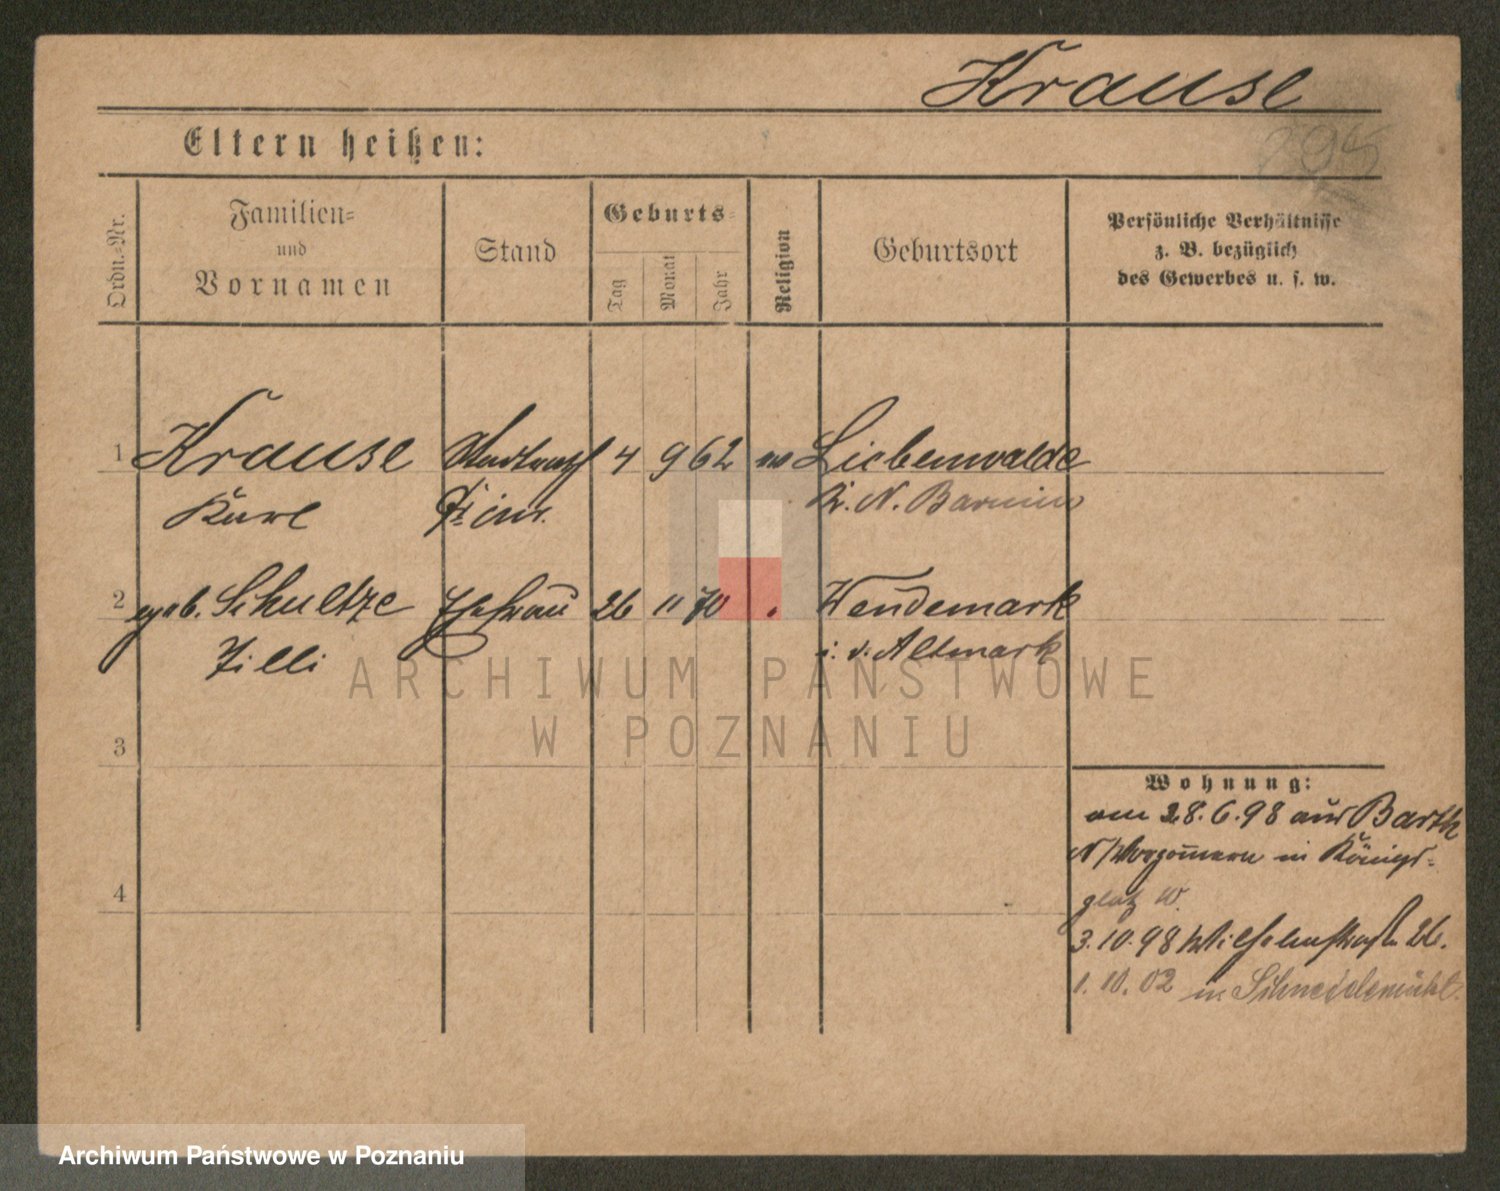 Krause
295
Eltern heißen:
Ordn.-Nr.
Familien-
und
Vornamen
Stand
Geburts-
Tag
Monat
Jahr
Religion
Geburtsort
Persönliche Verhältnisse
z. B. bezüglich
des Gewerbes u. s. w.
1 Krause 4 9 62 Liebenwalde
Karl Kr. N. Barnim
2 geb. Schultze Ehefrau 26 11 70 Wendemark
Zilli i. d. Altmark
3
4
Wohnung:
am 28.6.98 aus Barth
in Königs-
platz
3.10.98 Wilhelmstraße 26.
1.10.02 in Schneidemühl.
ARCHIWUM PAŃSTWOWE
W POZNANIU
Archiwum Państwowe w Poznaniu